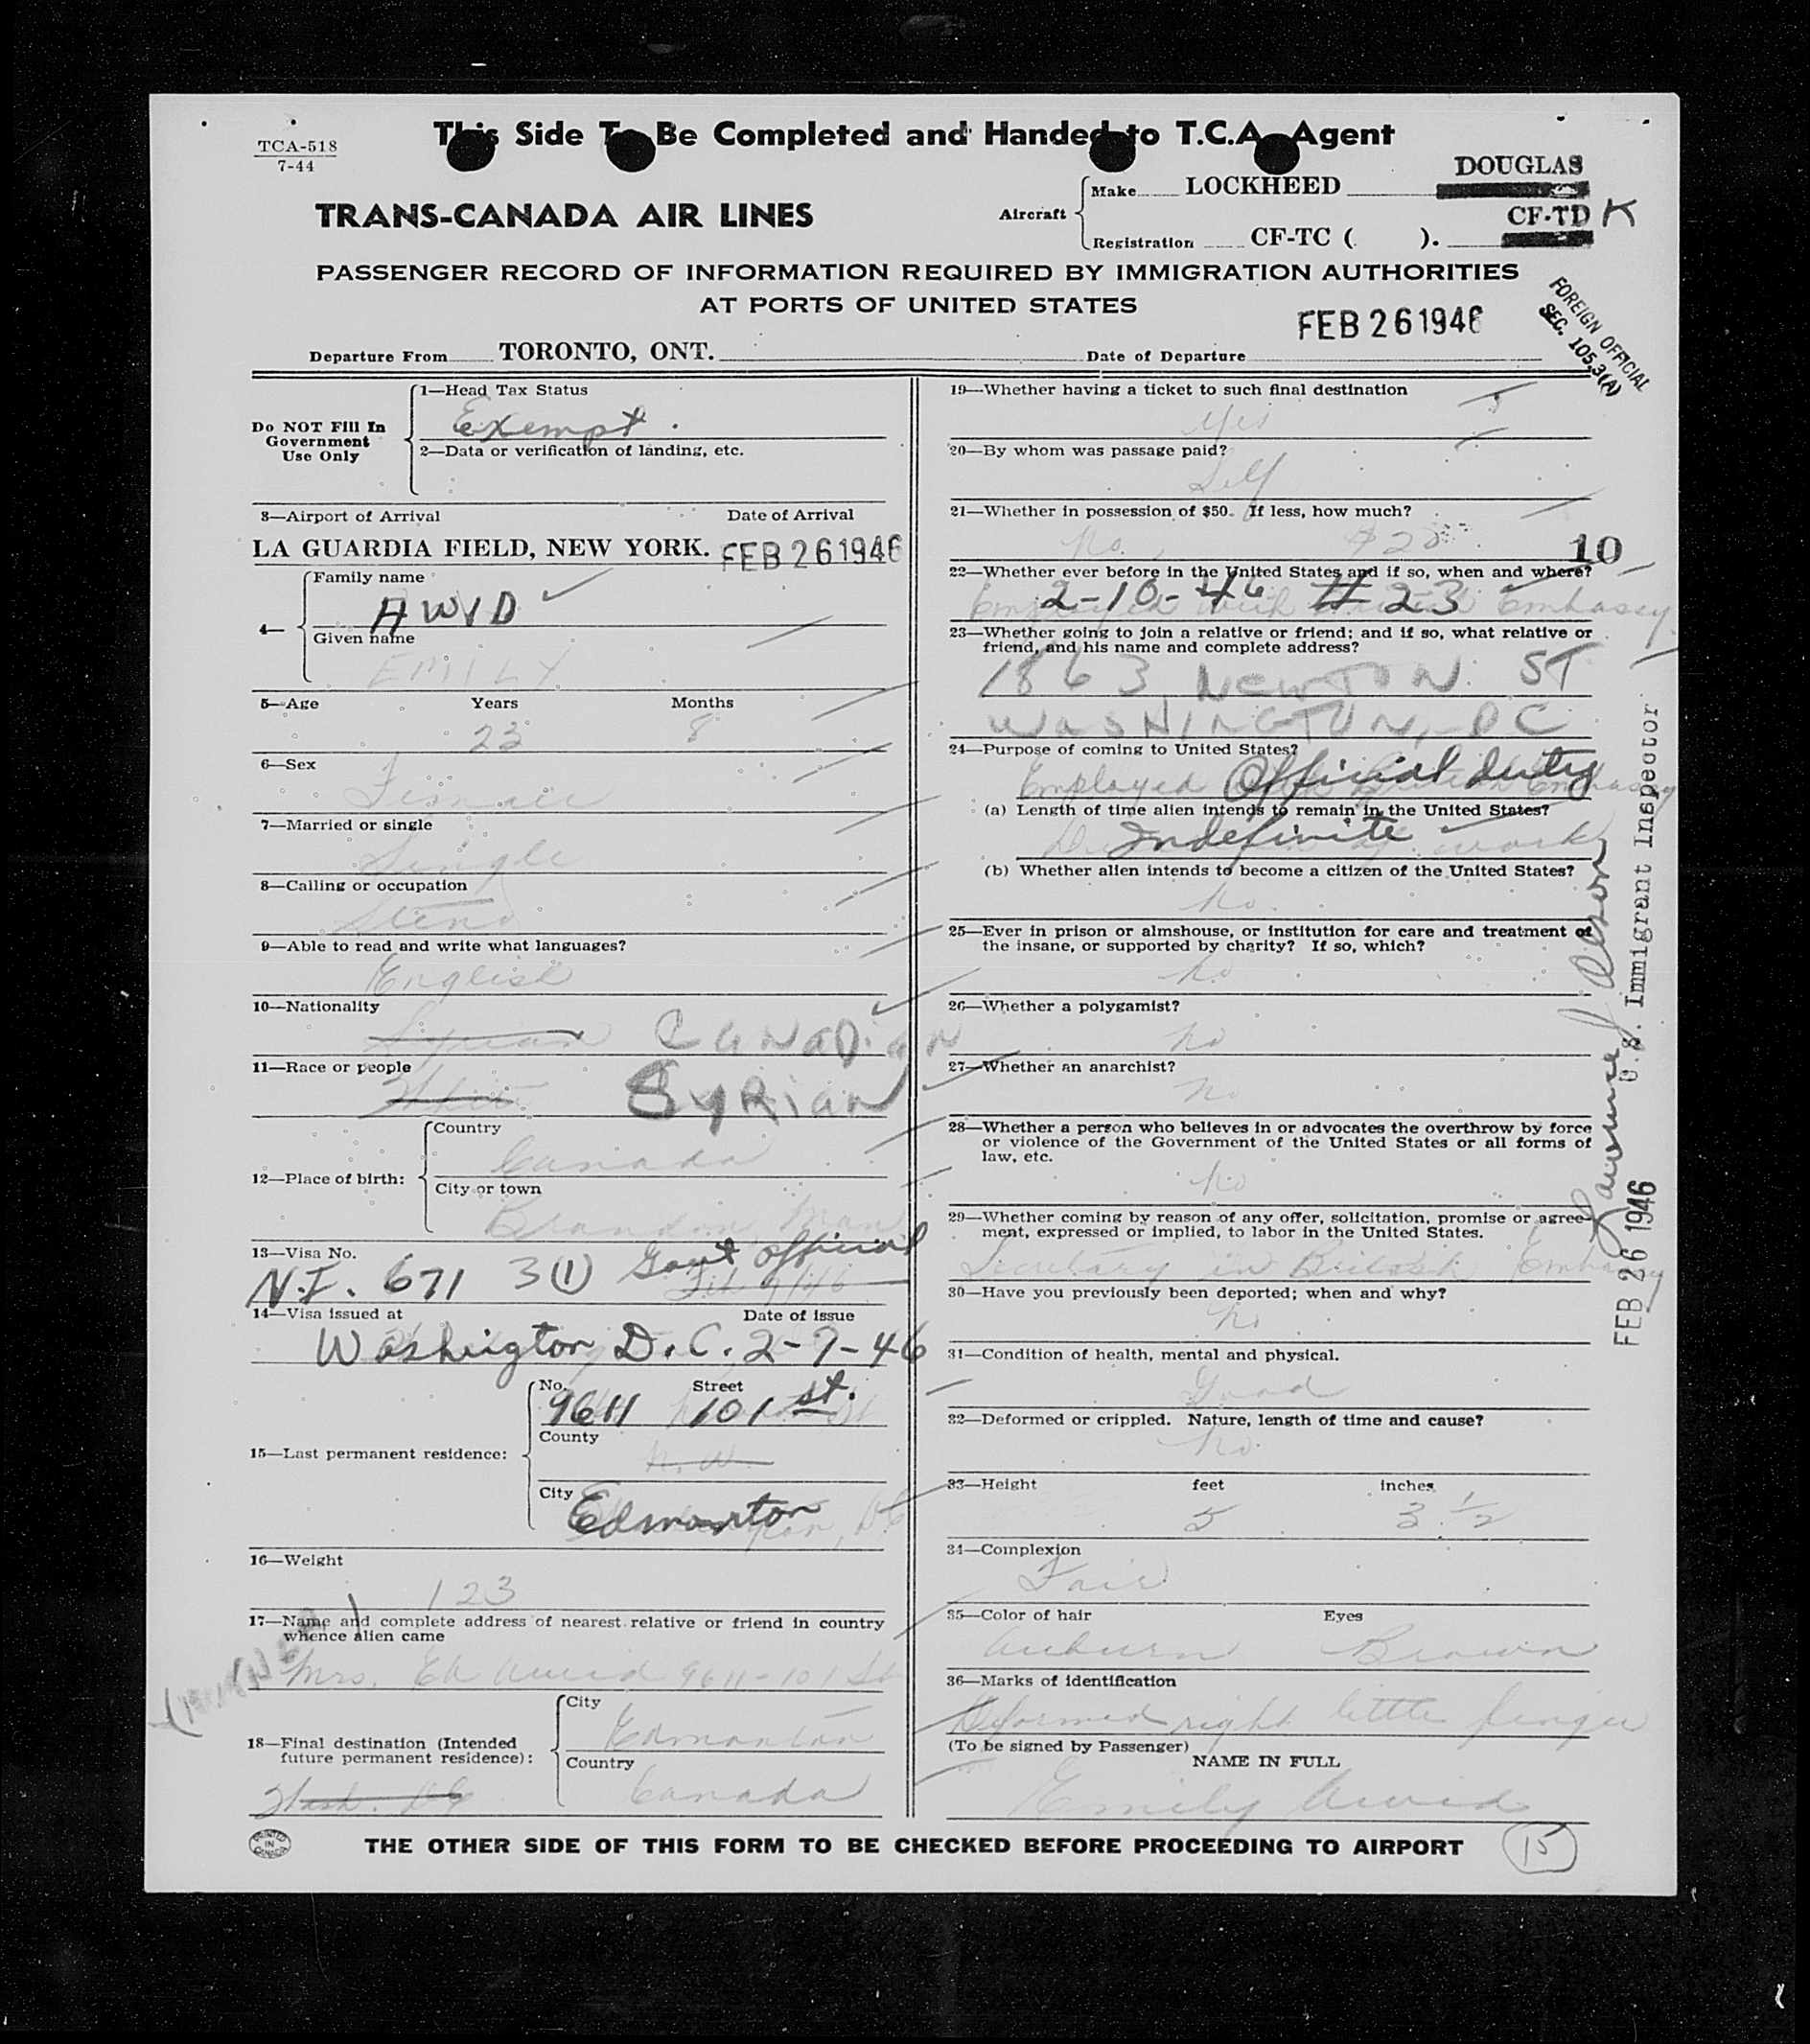 This Side To Be Completed and Handed to T.C.A. Agent
TCA-518
7-44
TRANS-CANADA AIR LINES
Aircraft
Make LOCKHEED DOUGLAS
Registration CF-TC ( ). CF-TD K
PASSENGER RECORD OF INFORMATION REQUIRED BY IMMIGRATION AUTHORITIES
AT PORTS OF UNITED STATES
FOREIGN OFFICIAL
SEC. 105.3(A)
Departure From TORONTO, ONT. Date of Departure FEB 26 1946
Do NOT Fill In
Government
Use Only
1—Head Tax Status
Exempt.
2—Data or verification of landing, etc.
3—Airport of Arrival Date of Arrival
LA GUARDIA FIELD, NEW YORK. FEB 26 1946
4—
Family name
AWID
Given name
EMILY
5—Age Years Months
23 8
6—Sex
Female
7—Married or single
Single
8—Calling or occupation
Steno
9—Able to read and write what languages?
English
10—Nationality
Syrian CANADiAN
11—Race or people
White SYRiAN
12—Place of birth:
Country
Canada
City or town
Brandon, Man
13—Visa No.
N.I. 671 3(1) Govt official
Feb 9/46
14—Visa issued at Date of issue
Washington D.C. 2-7-46
15—Last permanent residence:
No. Street
9611 101 st.
County
N.W.
City
Edmonton
16—Weight
123
17—Name and complete address of nearest relative or friend in country
whence alien came
Mrs. Ed Awid 9611-101 St
18—Final destination (Intended
future permanent residence):
City
Edmonton
Country
Canada
Wash. DC
19—Whether having a ticket to such final destination
Yes
20—By whom was passage paid?
Self
21—Whether in possession of $50. If less, how much?
No. $20
10
22—Whether ever before in the United States and if so, when and where?
2-10-46 # 23
Employed with British Embassy
23—Whether going to join a relative or friend; and if so, what relative or
friend, and his name and complete address?
1863 NEWTON ST
WASHINGTON, DC
24—Purpose of coming to United States?
Official duty
Employed Embassy
(a) Length of time alien intends to remain in the United States?
Indefinite
work
(b) Whether alien intends to become a citizen of the United States?
No.
25—Ever in prison or almshouse, or institution for care and treatment of
the insane, or supported by charity? If so, which?
No
26—Whether a polygamist?
No
27—Whether an anarchist?
No
28—Whether a person who believes in or advocates the overthrow by force
or violence of the Government of the United States or all forms of
law, etc.
No
29—Whether coming by reason of any offer, solicitation, promise or agree-
ment, expressed or implied, to labor in the United States.
Secretary in British Embassy
30—Have you previously been deported; when and why?
No
31—Condition of health, mental and physical.
Good
32—Deformed or crippled. Nature, length of time and cause?
No.
33—Height feet inches
5 3 1/2
34—Complexion
Fair
35—Color of hair Eyes
Auburn Brown
36—Marks of identification
Deformed right little finger
(To be signed by Passenger)
NAME IN FULL
Emily Awid
U.S. Immigrant Inspector
FEB 26 1946
PRINTED
IN
CANADA
THE OTHER SIDE OF THIS FORM TO BE CHECKED BEFORE PROCEEDING TO AIRPORT
15